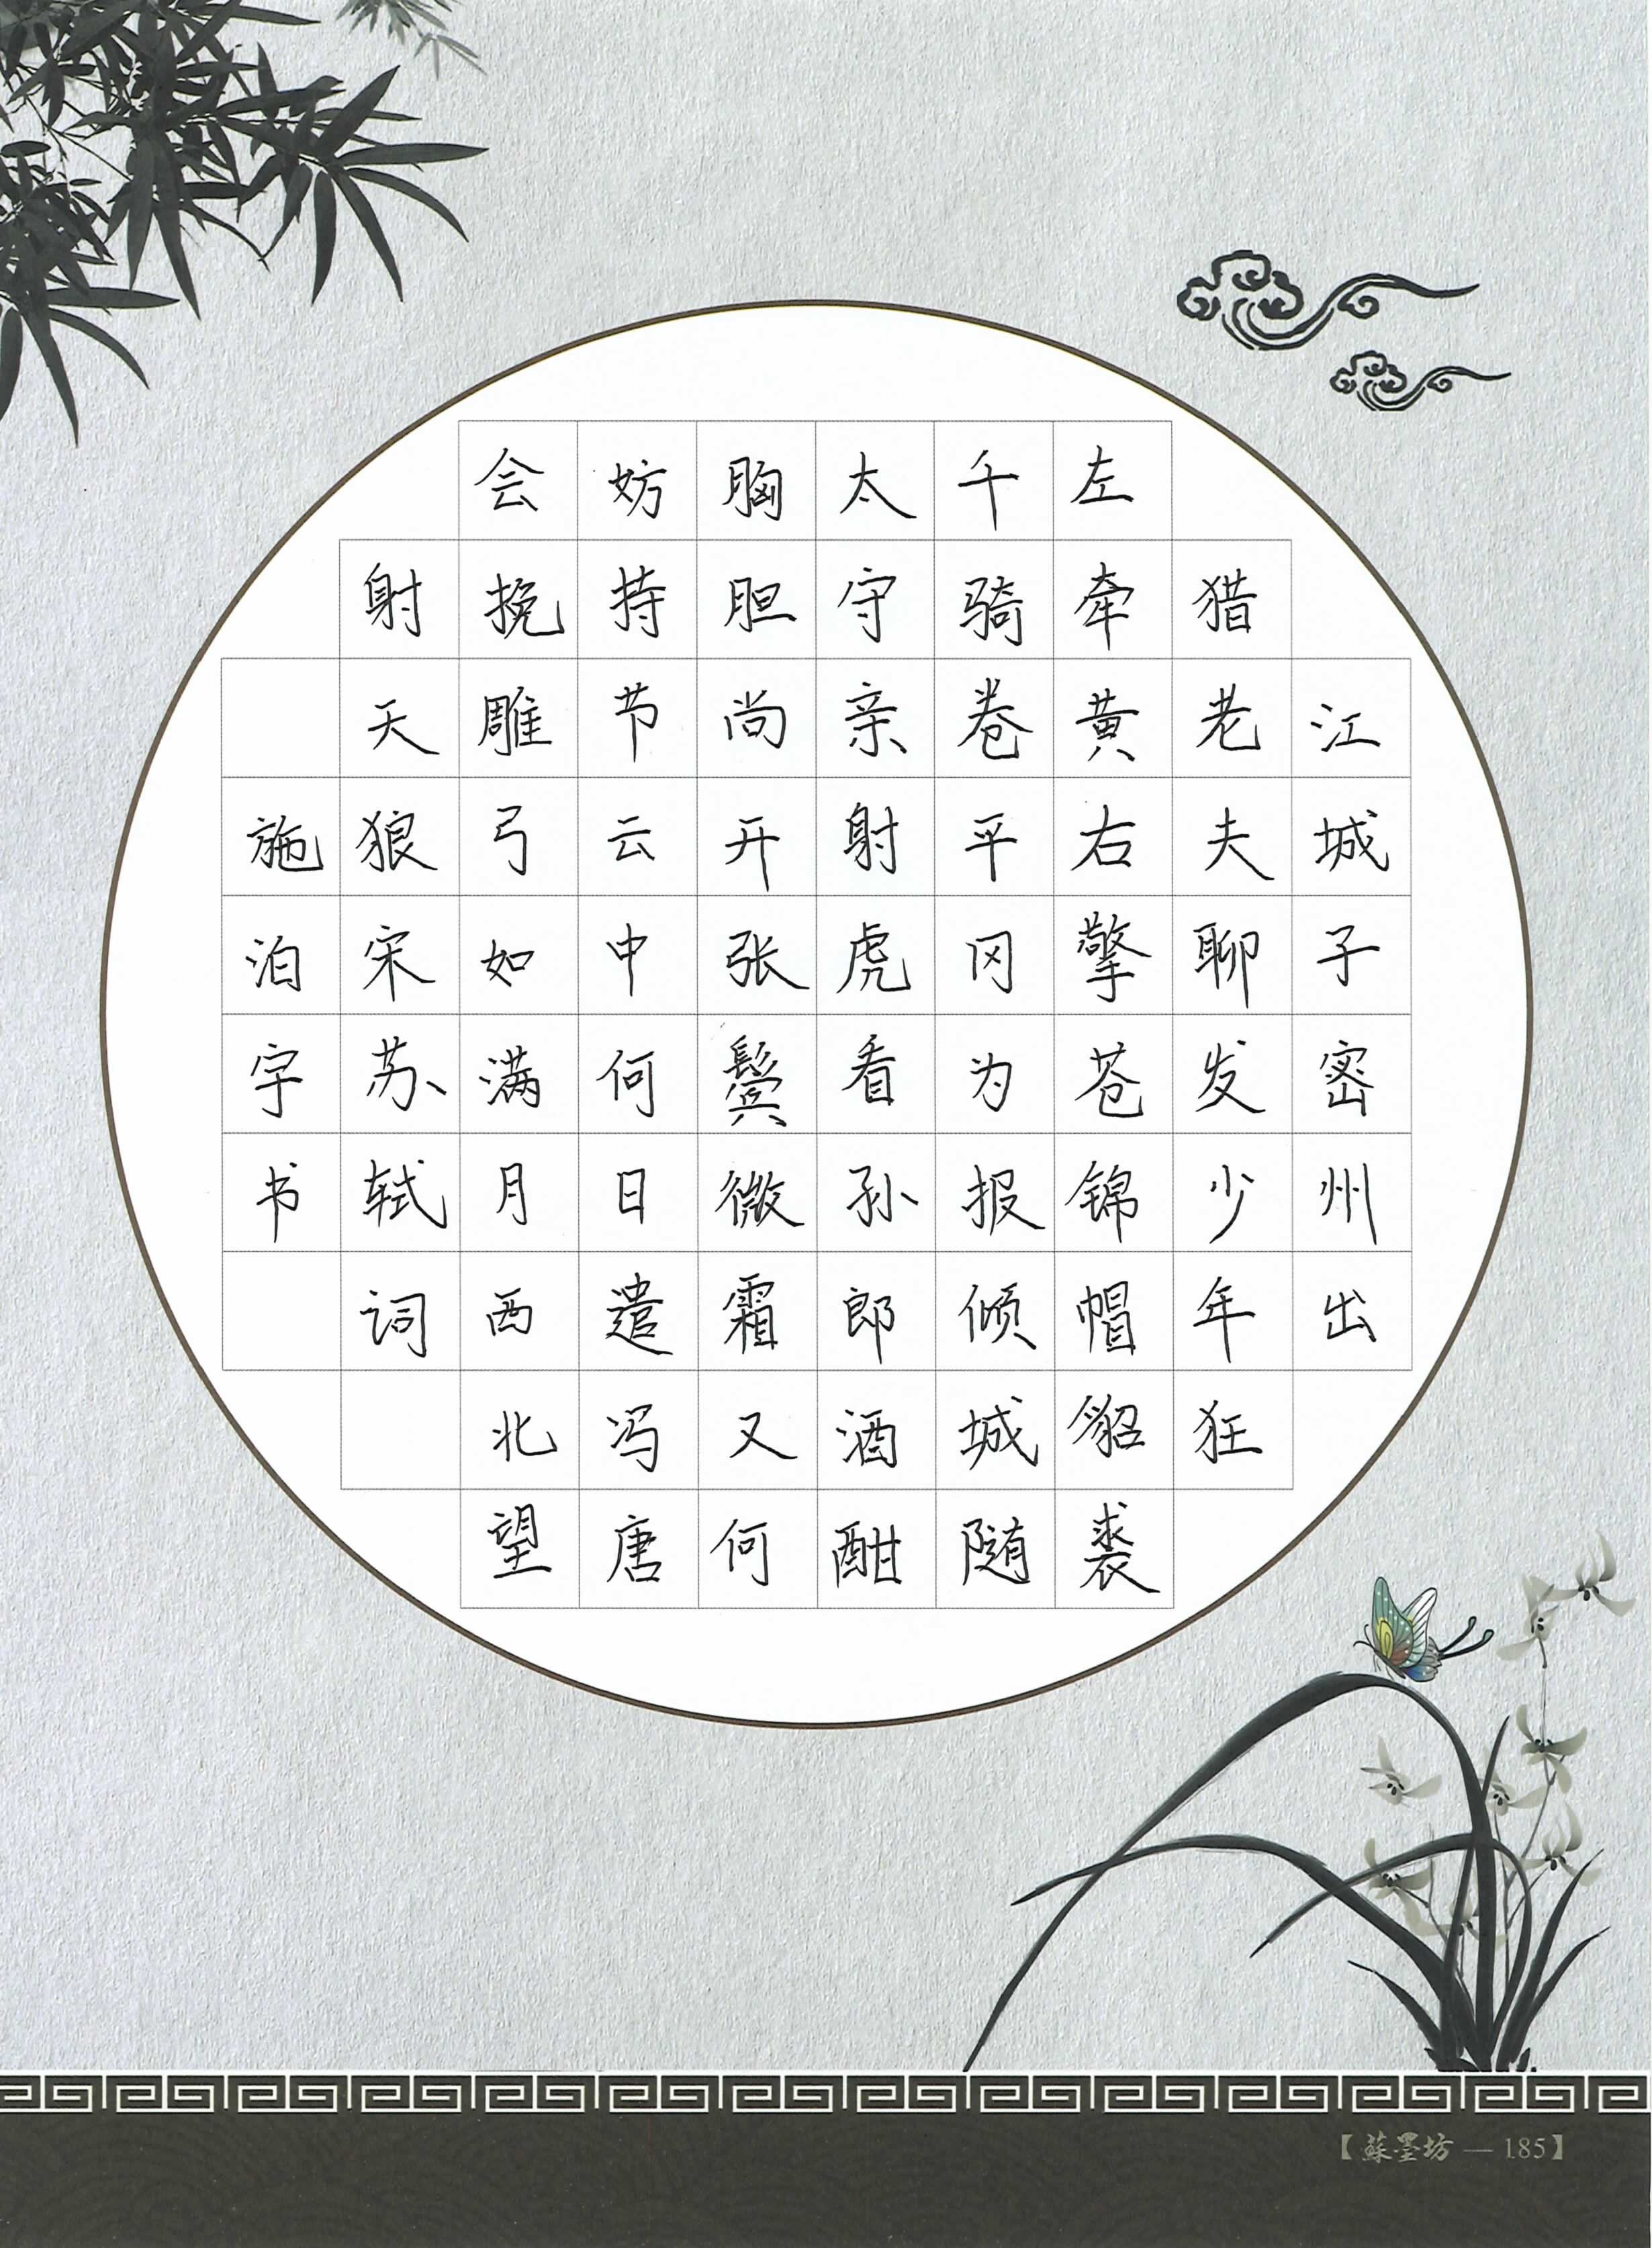 江城子密州出
猎老夫聊发少年狂
左牵黄右擎苍锦帽貂裘
千骑卷平冈为报倾城随
太守亲射虎看孙郎酒酣
胸胆尚开张鬓微霜又何
妨持节云中何日遣冯唐
会挽雕弓如满月西北望
射天狼宋苏轼词
施泊宇书
【蘇墨坊 — 185】